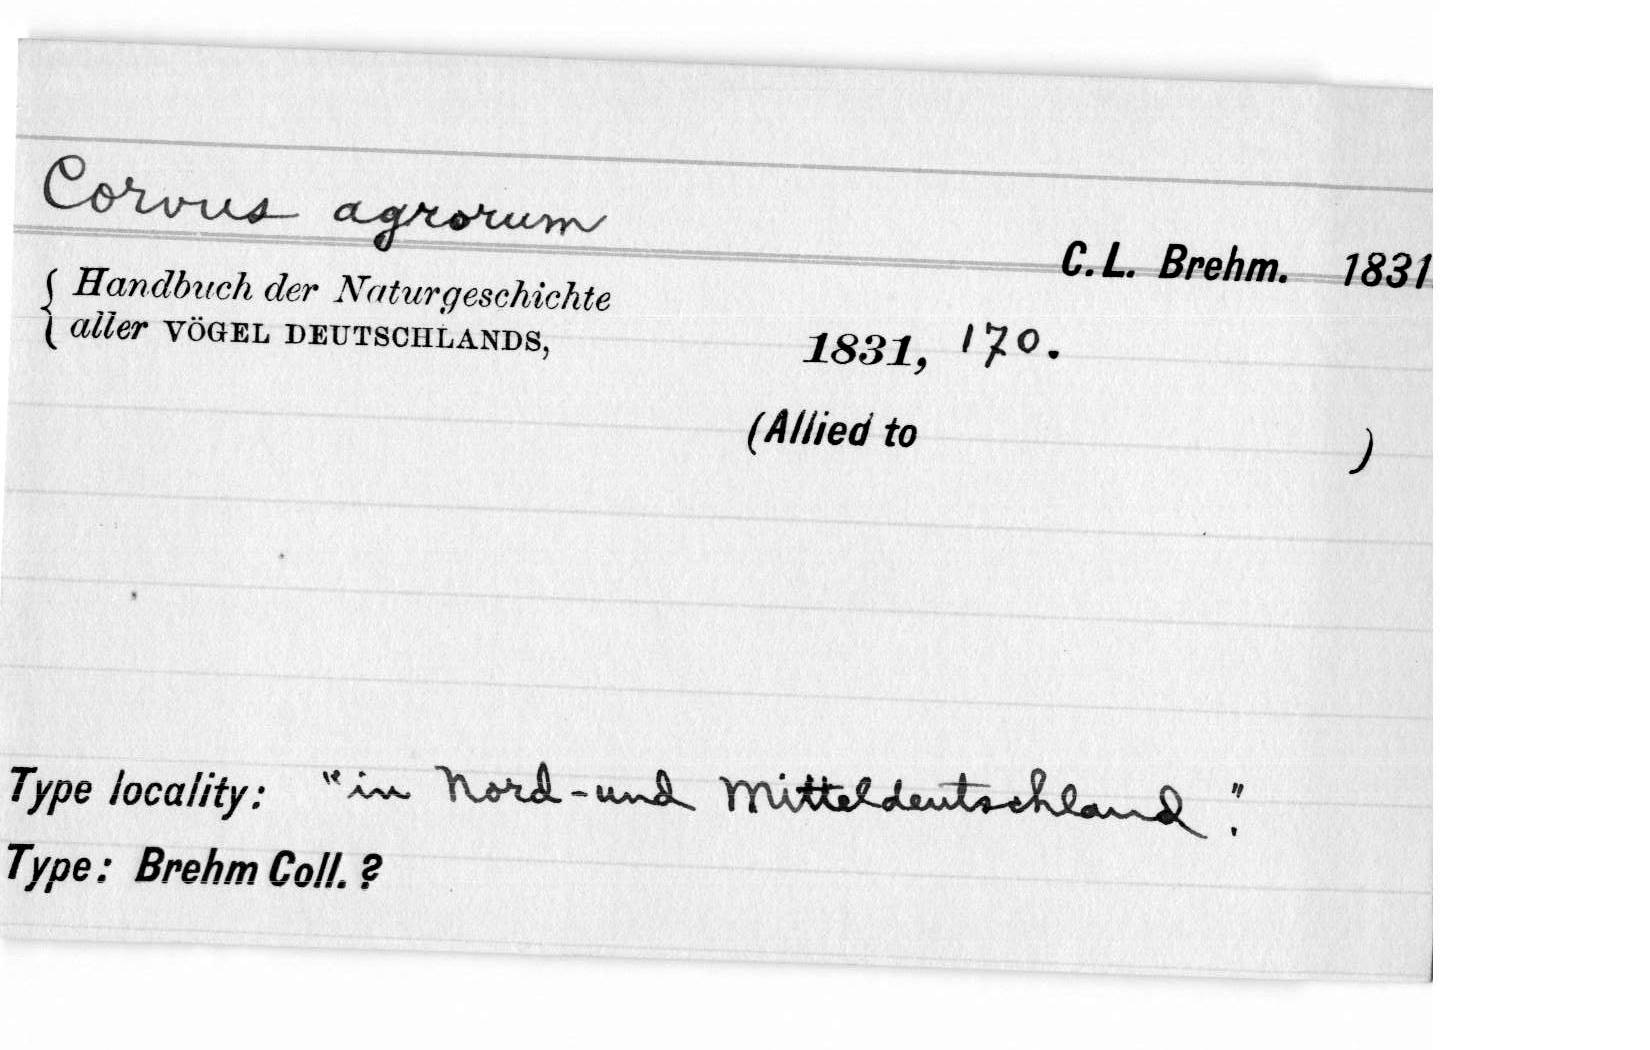 Corvus agrorum
C. L. Brehm. 1831
Handbuch der Naturgeschichte
aller VÖGEL DEUTSCHLANDS, 1831, 170.
(Allied to )
Type locality: "in Nord-und Mitteldeutschland".
Type: Brehm Coll. ?